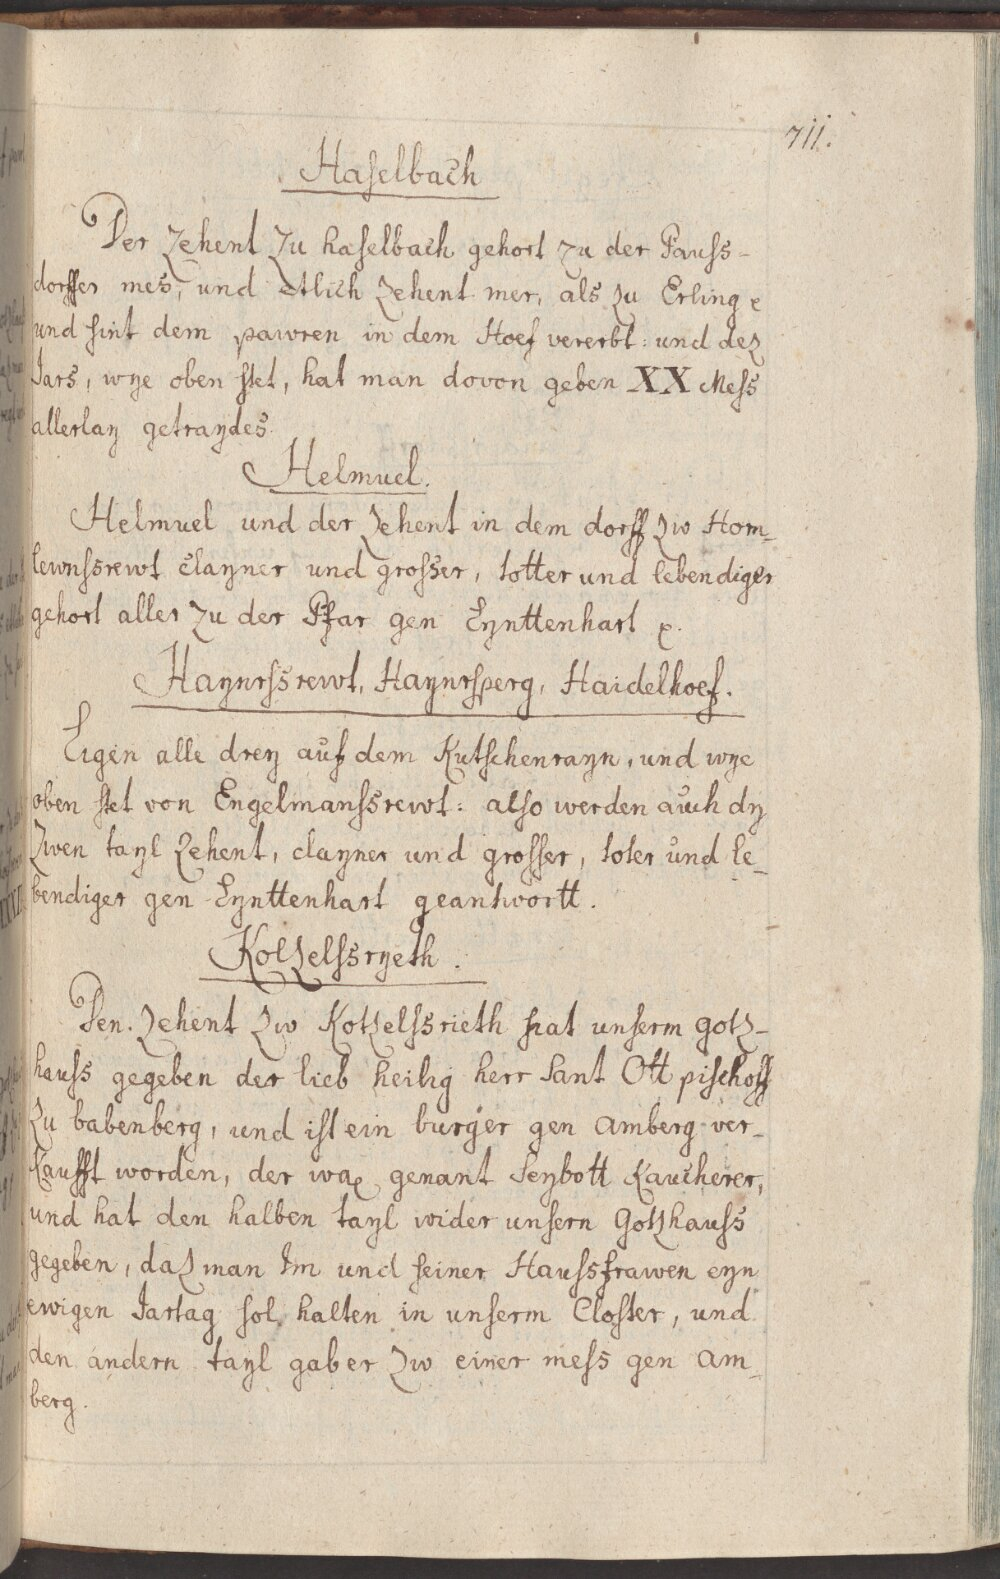 711.
Haselbach
Der Zehent Zu haselbach gehort zu der Pauss-
dorffer mes, und Etlich Zehent mer, als Zu Erling
und sint dem pawren in dem Hoef vererbt: und dez
Jars, wye oben stet, hat man dovon geben XX Mess
allerlay getraydes.
Helmuel.
Helmuel und der Zehent in dem dorff Zw Hom-
lewnssrewt clayner und grosser, totter und lebendiger
gehort aller Zu der Pfar gen Eynttenhart
Haynrssrewt, Haynrsperg, Haidelhoef.
Ligen alle drey auf dem Kutschenrayn, und wye
oben stet von Engelmanssrewt: also werden auch dy
Zwen tayl Zehent, clayner und grosser, toter und le-
bendiger gen Eynttenhart geantwortt.
Kotzelssryeth.
Den Zehent Zw Kotzelssrieth hat unserm gotz-
hauss gegeben der lieb heilig herr Sant Ott pischoff
Zu babenberg, und ist ein burger gen Amberg ver-
kaufft worden, der waz genant Seybott Kaucherer,
und hat den halben tayl wider unsern Gotzhauss
gegeben, daz man Im und seiner Haussfrawen eyn
ewigen Jartag sol halten in unserm Closter, und
den andern tayl gab er Zw einer mess gen Am-
berg.